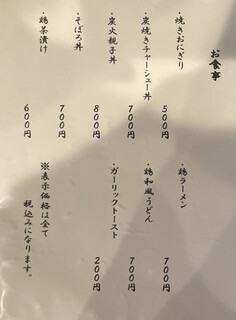 お食事
・焼きおにぎり 500円
・炭焼きチャーシュー丼 700円
・炭火親子丼 800円
・そぼろ丼 700円
・鶏茶漬け 600円
・鶏ラーメン 700円
・鶏和風うどん 700円
・ガーリックトースト 200円
※表示価格は全て
税込みになります。